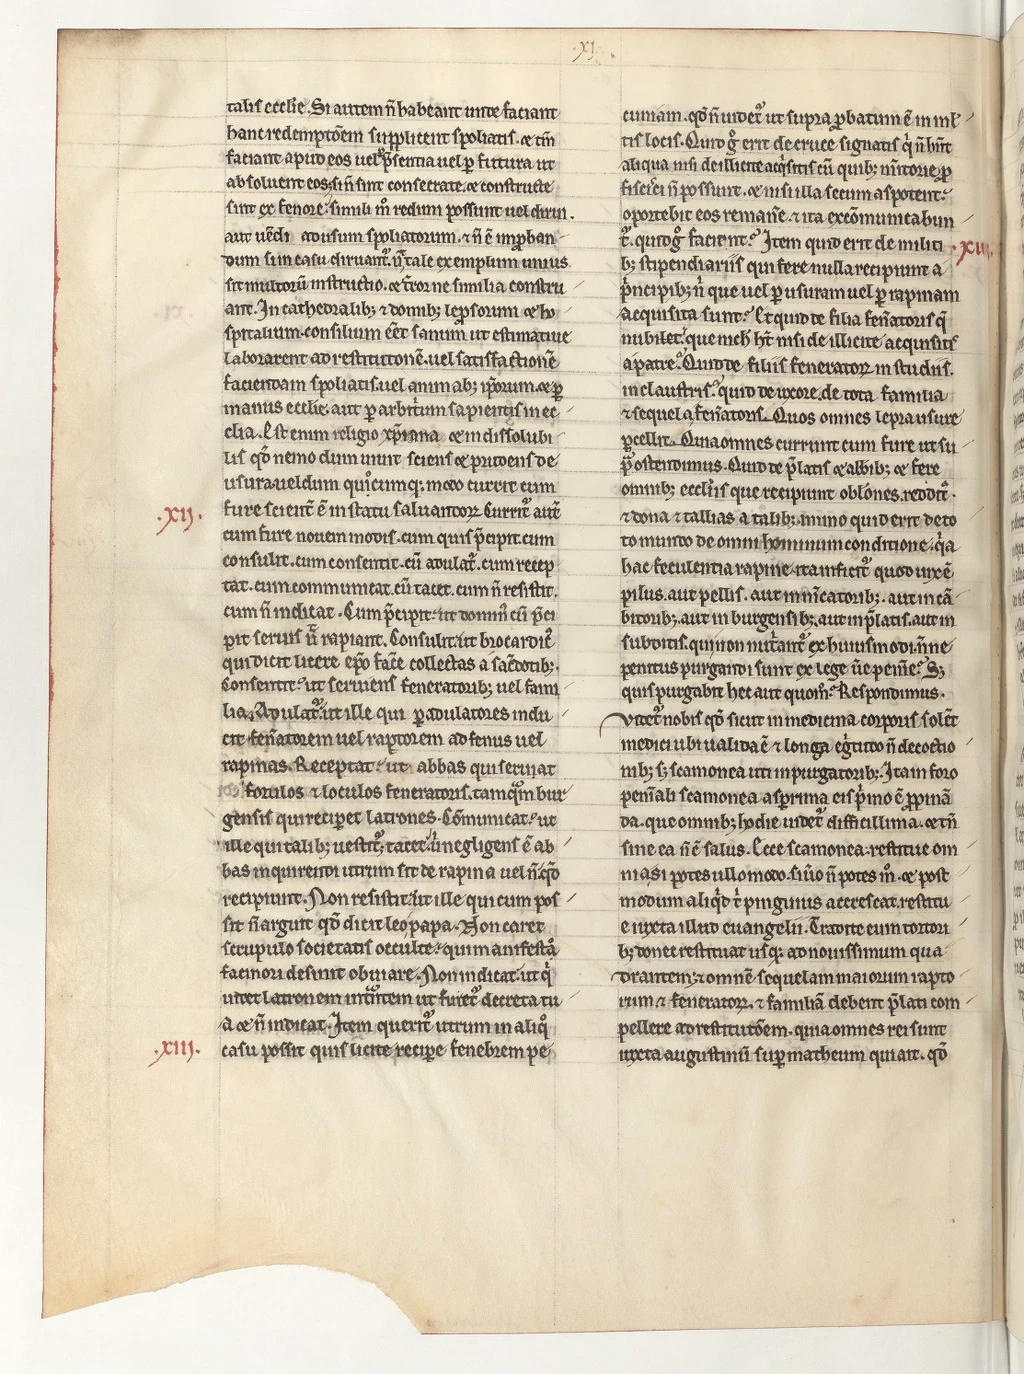 ·XI·
talis ecclie. Si autem n̄ habeant unde faciant
hanc redemptōem supplicent spoliatis. ⁊ tm̄
faciant apud eos uel p̄sentia uel ꝑ futura ut
absoluent eos, si n̄ sint consecrate ⁊ constructe
sint ex fenore. simili m̄ redum possunt uel dirui.
aut uēdi ad usum spoliatorum. ⁊ n̄ ē improban
dum si in casu diruant᷑.
sit multorū instructio. ⁊ similia constru
ant. In cathedralib; ⁊ domib; leprosorum ⁊ ho
spitalium. consilium eēt sanum ut estimatiue
laborarent ad restitutionē. uel satisfactionē
faciendam spoliatis. uel animab; ip̄orum. ⁊ ꝑ
manus ecclie. aut ꝑ arbitrium sapientis in ec
clia. Est enim religio xp̄iana ⁊ indissolubi
lis qd̄ nemo dum uiuit sciens ⁊ prudens de
usura uel dum quicumq; modo currit cum
·XII·
fure scient̄ ē in statu saluandoꝝ. Currit aut̄
cum fure nouem modis. cum quis p̄cipit. cum
consulit. cum consentit. cū adulat᷑. cum recep
tat. cum communicat. cū tacet. cum n̄ resistit.
cum n̄ indicat. Cum p̄cipit. ut domin̄ cū p̄ci
pit seruis ut̄ rapiant. Consulit. ut brocardic̄
qui dicit licere ep̄o fac̄e collectas a sac̄dotib;.
Consentit. ut seruiens feneratorib; uel fami
lia. Adulat᷑. ut ille qui ꝑ adulatores indu
cit fen̄atorem uel raptorem ad fenus uel
rapinas. Receptat. ut abbas qui seruat
forulos ⁊ loculos feneratoris. tamq̄m bur
gensis qui recipit latrones. Cōmunicat. ut
ille qui talib; uestit᷑. tacet. ut negligens ē ab
bas inquirendi utrum sit de rapina uel n̄. qd̄
recipiunt. Non resistit. ut ille qui cum pos
sit n̄ arguit qd̄ dicit leo papa. Non caret
scrupulo societatis occulte. qui manifestā
facinori desinit obuiare. Non indicat. ut q̄
uidet latronem ut furet᷑ decreta tu
a ⁊ n̄ indicat. Item querit᷑ utrum in aliq̊
·XIII·
casu possit quis licite recip̄e fenebrem pe
cuniam. qd̄ n̄ uidet᷑ ut supra ꝓbatum ē in ml̄
tis locis. Quid g̊ erit de cruce signatis q̄ n̄ hn̄t
aliqua nisi de illicite acq̄sitis cū quib; ꝓ
ficisci n̄ possunt. ⁊ nisi illa secum asportent.
oportebit eos reman̄e. ⁊ ita excōmunicabun
t᷑. quid g̊ facient? Item quid erit de militi
·XIIII·
b; stipendiariis qui fere nulla recipiunt a
p̄ncipib; n̄ que uel ꝑ usuram uel ꝑ rapinam
acquisita sunt? Et quid de filia fen̄atoris q̄
nubilet̄. que nich̄ ht̄ nisi de illicite acquisitis
a patre? Quid de filiis feneratoꝝ in studiis.
in claustris? quid de uxore. de tota familia
⁊ sequela fen̄atoris. Quos omnes lepra usure
ꝑcellit. Quia omnes currunt cum fure ut su
p̄ ostendimus. Quid de p̄latis ⁊ abb̄ib; ⁊ fere
omnib; ecclīis que recipiunt oblōnes. reddit᷑.
⁊ dona ⁊ tallias a talib;. immo quid erit de to
to mundo de omni hominum conditione. q̄a
hac feculentia rapine. ita inficit᷑ quod uix ē
pilus. aut pellis. aut in m̄catorib;. aut in cā
bitorib;. aut in burgensib;. aut in p̄latis. aut in
subditis. qui non ex huiusmodi. n̄ne
penitus purgandi sunt ex lege ūe penīe? S;
quis purgabit hec aut quom̊? Respondimus.
Videt᷑ nobis qd̄ sicut in medicina corporis solēt
medici ubi ualida ē ⁊ longa eg̊tudo n̄ decoctio
nib; s; scamonea uti in purgatorib;. Ita in foro
penīali scamonea asprima eis p̄mo ē ꝓpinā
da. que omnib; hodie uidet᷑ difficillima. ⁊ tn̄
sine ea n̄ ē salus. Ecce scamonea. restitue om
nia si potes ullo modo. si ū̊ n̄ potes m̊. ⁊ post
modum aliq̄d t̄ pinguius accrescat. restitu
e iuxta illud euangelii. Tradite eum tortori
b; donec restituat usq; ad nouissimum qua
drantem. ⁊ omnē sequelam maiorum rapto
rum ⁊ feneratoꝝ. ⁊ familiā debent p̄lati com
pellere ad restitutōem. quia omnes rei sunt
iuxta augustinū suꝑ matheum qui ait. qd̄